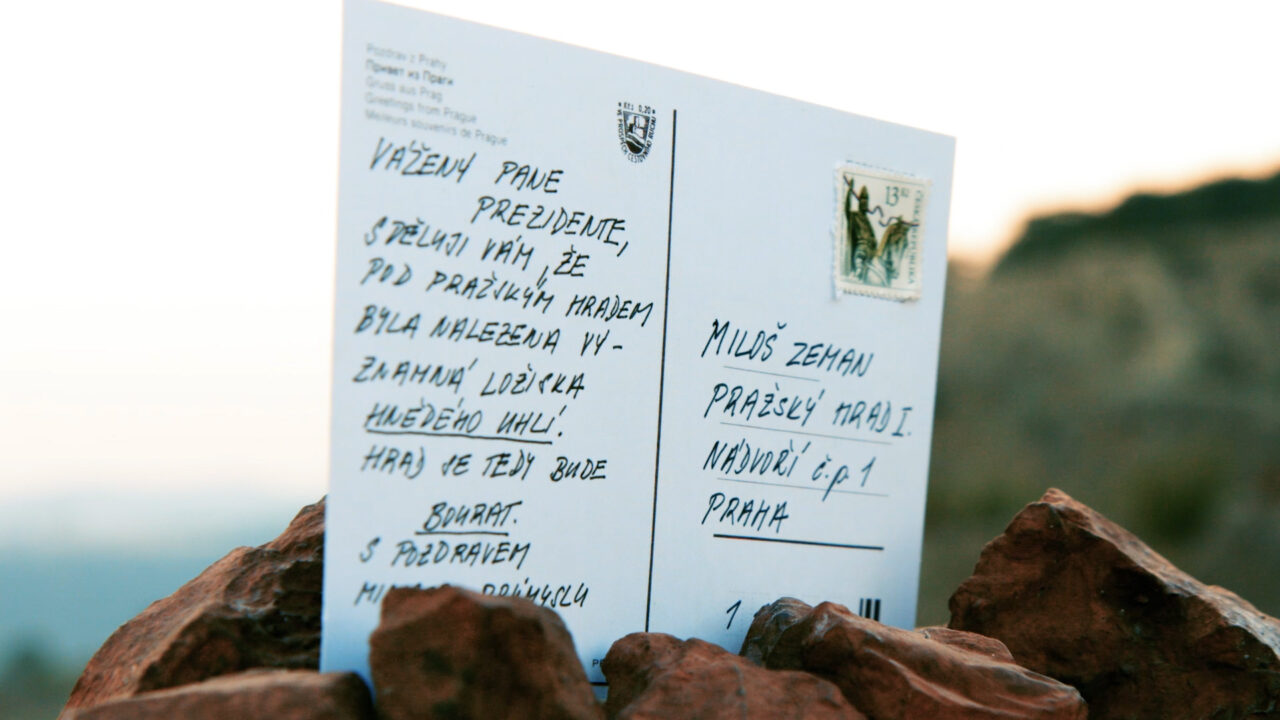 Pozdrav z Prahy
Привет из Праги
Gruss aus Prag
Greetings from Prague
Meilleurs souvenirs de Prague
KČS 0,20
VE PROSPĚCH CESTOVNÍHO RUCHU
VÁŽENÝ PANE
PREZIDENTE,
SDĚLUJI VÁM, ŽE
POD PRAŽSKÝM HRADEM
BYLA NALEZENA VÝ-
ZNAMNÁ LOŽISKA
HNĚDÉHO UHLÍ.
HRAD SE TEDY BUDE
BOURAT.
S POZDRAVEM
PRŮMYSLU
13 Kč
ČESKÁ REPUBLIKA
MILOŠ ZEMAN
PRAŽSKÝ HRAD I.
NÁDVOŘÍ č.p. 1
PRAHA
1